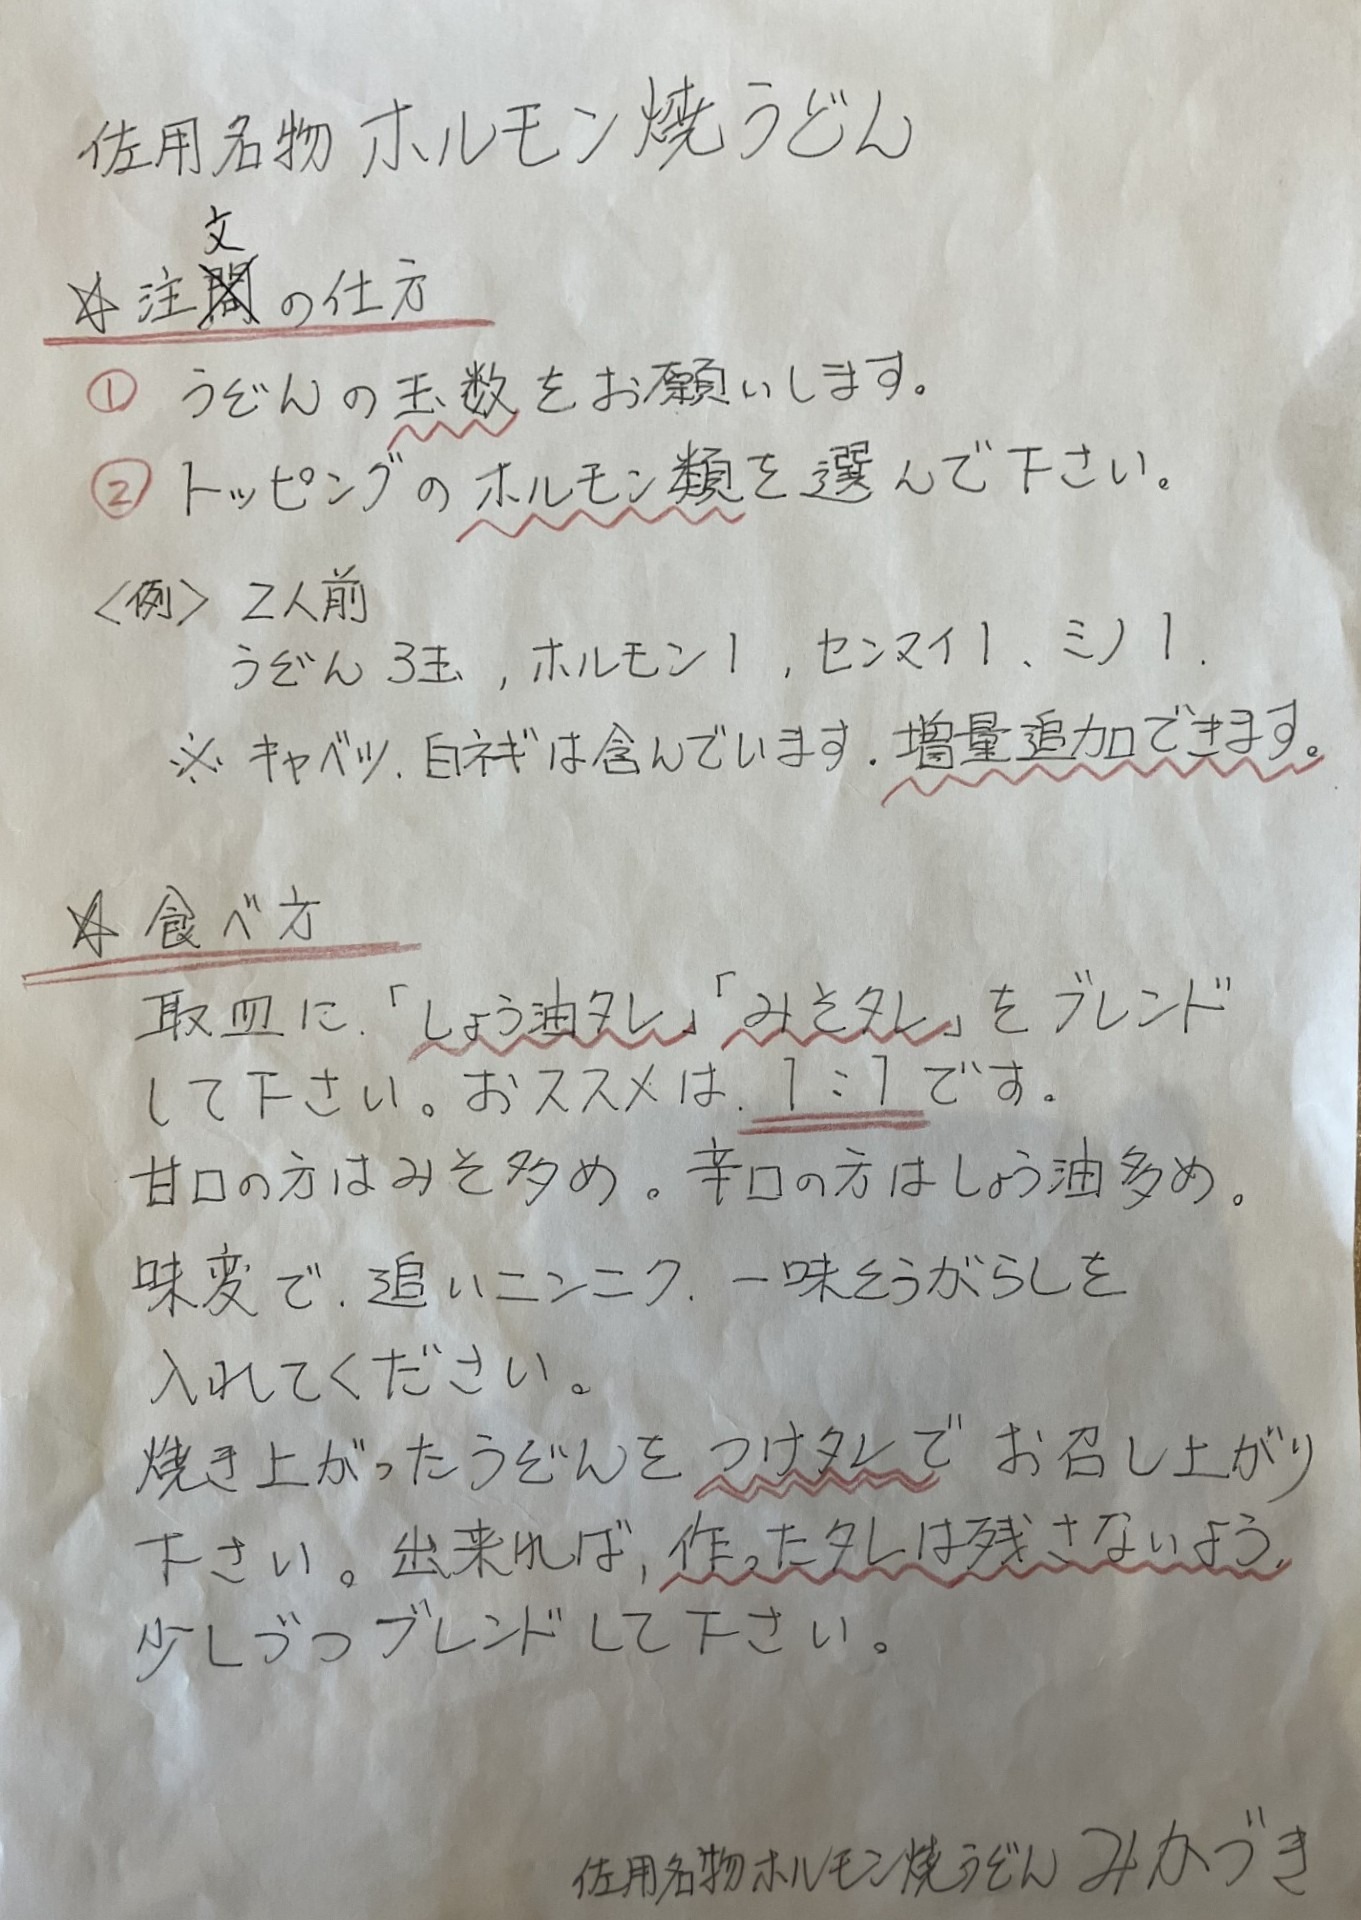 佐用名物 ホルモン焼うどん
☆ 注文の仕方
① うどんの玉数をお願いします。
② トッピングのホルモン類を選んで下さい。
〈例〉 2人前
うどん 3玉, ホルモン1, センマイ1、ミノ1.
※ キャベツ、白ネギは含んでいます. 増量追加できます。
☆ 食べ方
取皿に、「しょう油タレ」「みそタレ」をブレンド
して下さい。おススメは、1:1です。
甘口の方はみそ多め。辛口の方はしょう油多め。
味変で、追いニンニク、一味とうがらしを
入れてください。
焼き上がったうどんをつけタレでお召し上がり
下さい。出来れば, 作ったタレは残さないよう、
少しづつブレンドして下さい。
佐用名物ホルモン焼うどん みかづき